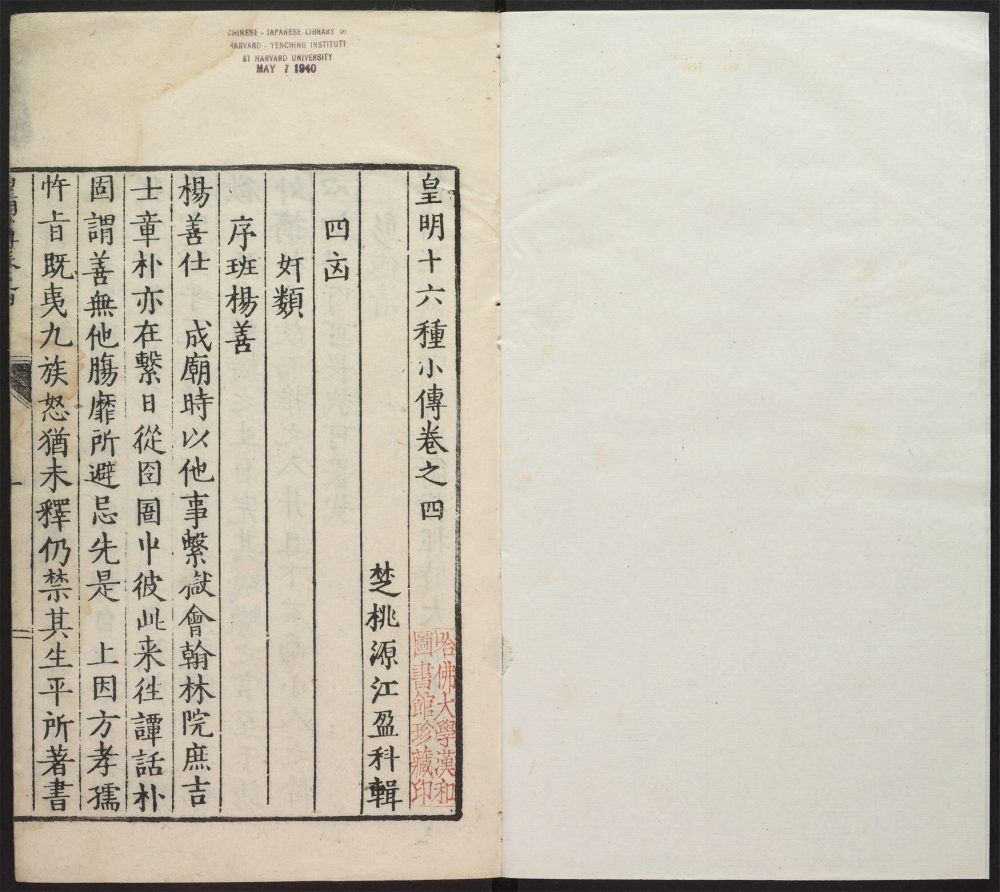 CHINESE - JAPANESE LIBRARY OF
HARVARD - YENCHING INSTITUTE
AT HARVARD UNIVERSITY
MAY 7 1940
皇明十六種小傳卷之四
哈佛大學漢和
圖書館珍藏印
楚桃源江盈科輯
四凶
奸類
序班楊善
楊善仕 成廟時以他事繫獄會翰林院庶吉
士章朴亦在繫日從囹圄中彼此来往譚話朴
固謂善無他膓靡所避忌先是 上因方孝孺
忤旨既夷九族怒猶未釋仍禁其生平所著書